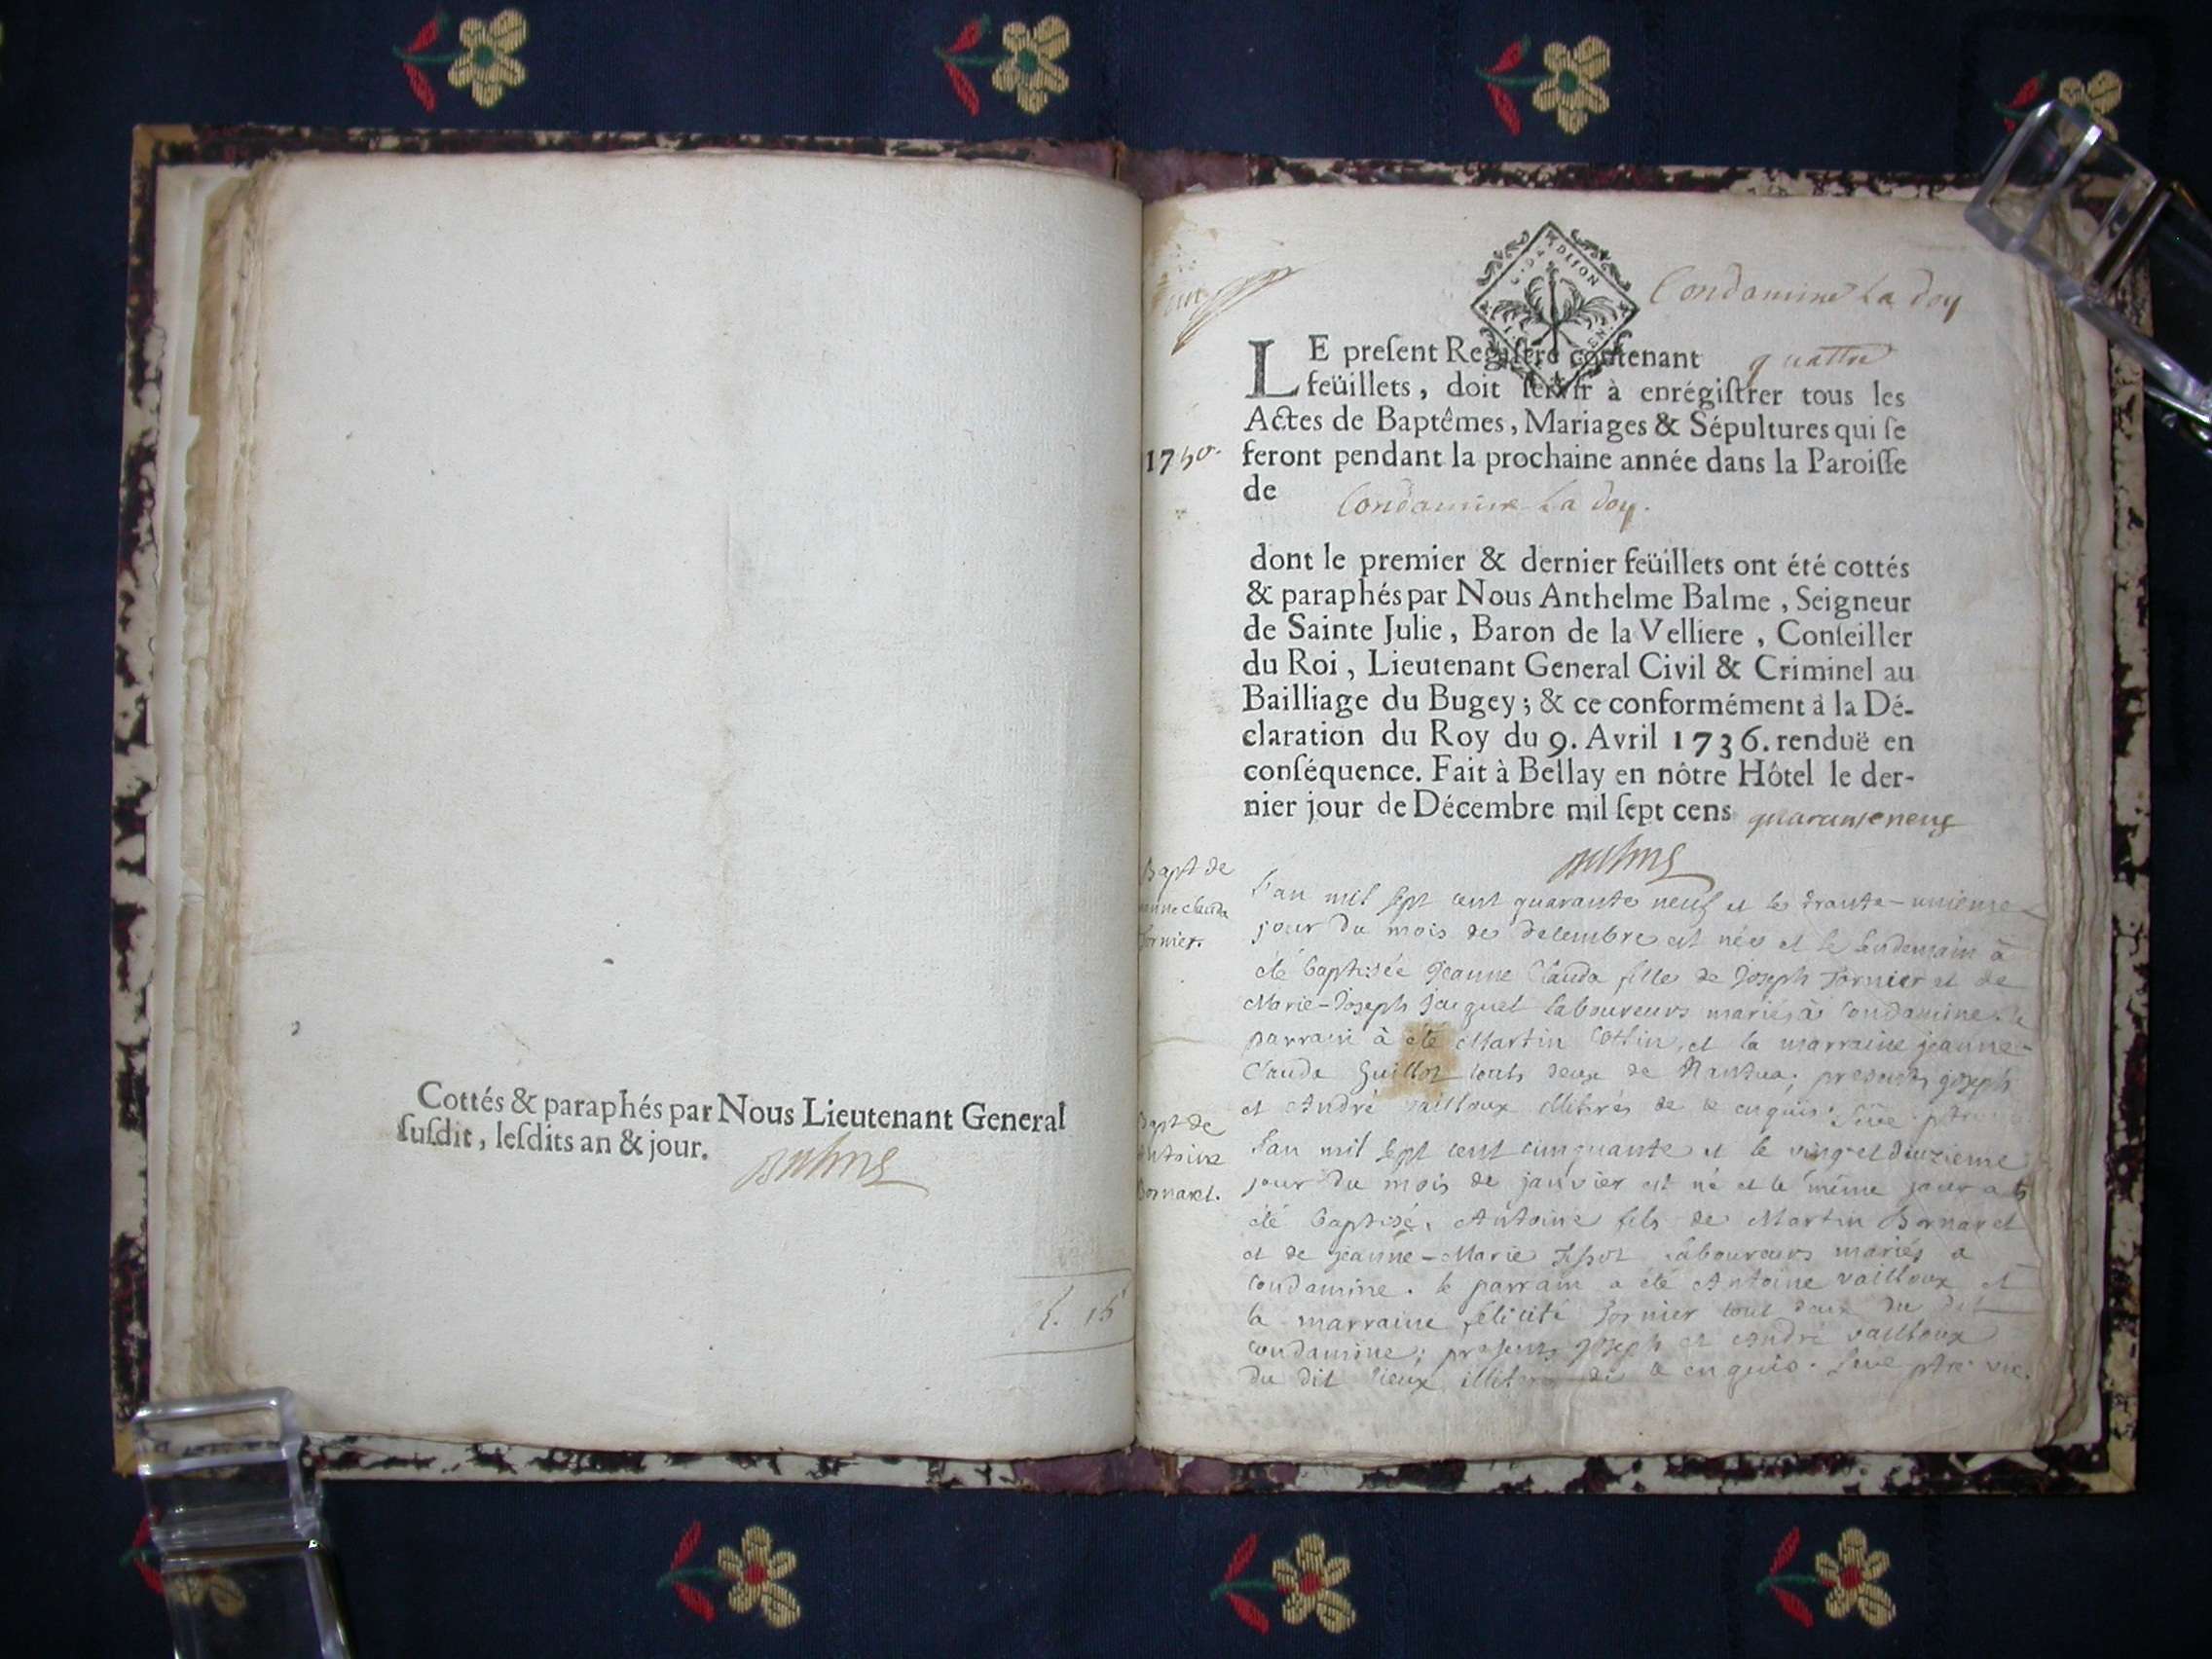 Cottés & paraphés par Nous Lieutenant General
ſuſdit, leſdits an & jour.
Balme
15
G. DE DIJON
Condamine La Doy
LE preſent Regiſtre contenant quattre
feüillets, doit ſervir à enrégiſtrer tous les
Actes de Baptêmes, Mariages & Sépultures qui ſe
1750.
feront pendant la prochaine année dans la Paroiſſe
de Condamine La Doy.
dont le premier & dernier feüillets ont été cottés
& paraphés par Nous Anthelme Balme, Seigneur
de Sainte Julie, Baron de la Velliere, Conſeiller
du Roi, Lieutenant General Civil & Criminel au
Bailliage du Bugey; & ce conformément à la Dé-
claration du Roy du 9. Avril 1736. renduë en
conſéquence. Fait à Bellay en nôtre Hôtel le der-
nier jour de Décembre mil ſept cens quaranteneuf
Balme
Bapt de
jeanne clauda
fornier.
L'an mil sept cent quarante neuf et le trante-unieme
jour du mois de decembre est née et le lendemain à
été baptisée Jeanne Clauda fille de Joseph fornier et de
Marie-Joseph jacquet laboureurs mariés à Condamine. le
parrain à été Martin Cottin, et la marraine jeanne-
Clauda Guillot touts deux de Nantua; presents joseph
et André vailloux illiterés de ce enquis. Seve ptre
Bapt de
Antoine
Bornaret.
L'an mil sept cent cinquante et le vingt et deuxieme
jour du mois de janvier est né et le même jour a
été baptisé, Antoine fils de Martin Bornaret
et de jeanne-Marie laboureurs mariés a
Condamine. le parrain a été Antoine vailloux et
la marraine felicité fornier tout deux du dit
condamine; presents joseph et André vailloux
du dit lieux de ce enquis. Seve ptre vic.